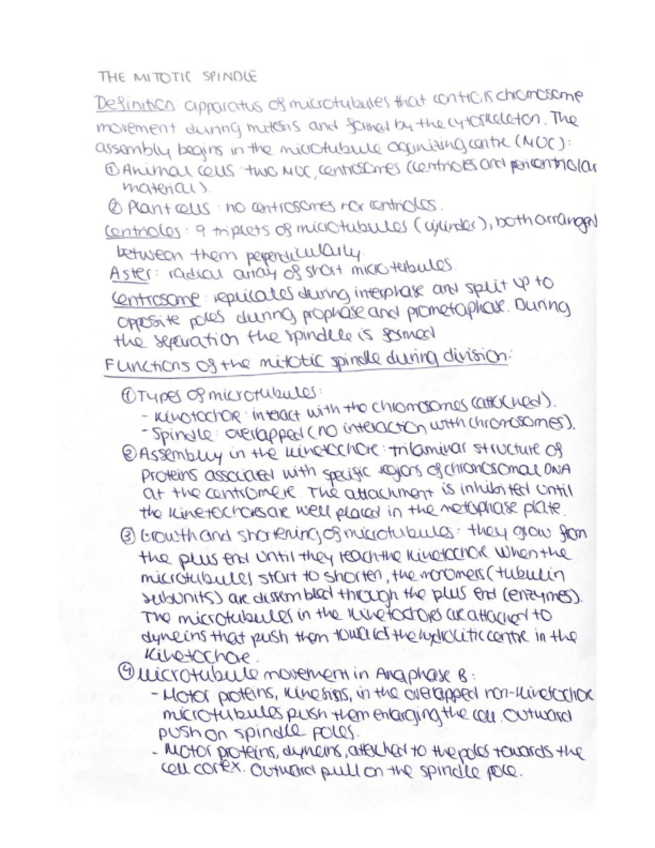 THE MITOTIC SPINDLE
Definition: apparatus of microtubules that controls chromosome
movement during mitosis and formed by the cytoskeleton. The
assembly begins in the microtubule organizing centre (MOC):
① Animal cells: two MOC, centrosomes (centrioles and pericentriolar
material).
② Plant cells: no centrosomes nor centrioles.
Centrioles: 9 triplets of microtubules (cylinder), both arranged
between them perpendicularly.
Aster: radial array of short microtubules.
Centrosome: replicates during interphase and split up to
opposite poles during prophase and prometaphase. During
the separation the spindle is formed
Functions of the mitotic spindle during division:
① Types of microtubules:
- Kinetochore: interact with the chromosomes (attached).
- Spindle: overlapped (no interaction with chromosomes).
② Assembly in the kinetochore: trilaminar structure of
proteins associated with specific regions of chromosomal DNA
at the centromere. The attachment is inhibited until
the kinetochores are well placed in the metaphase plate.
③ Growth and shortening of microtubules: they grow from
the plus end until they reach the kinetochore. When the
microtubules start to shorten, the monomers (tubulin
subunits) are dissembled through the plus end (enzymes).
The microtubules in the kinetochores are attached to
dyneins that push them toward the centre in the
kinetochore.
④ Microtubule movement in Anaphase B:
- Motor proteins, kinesins, in the overlapped non-kinetochor
microtubules push them enlarging the cell. Outward
push on spindle poles.
- Motor proteins, dyneins, attached to the poles towards the
cell cortex. Outward pull on the spindle pole.